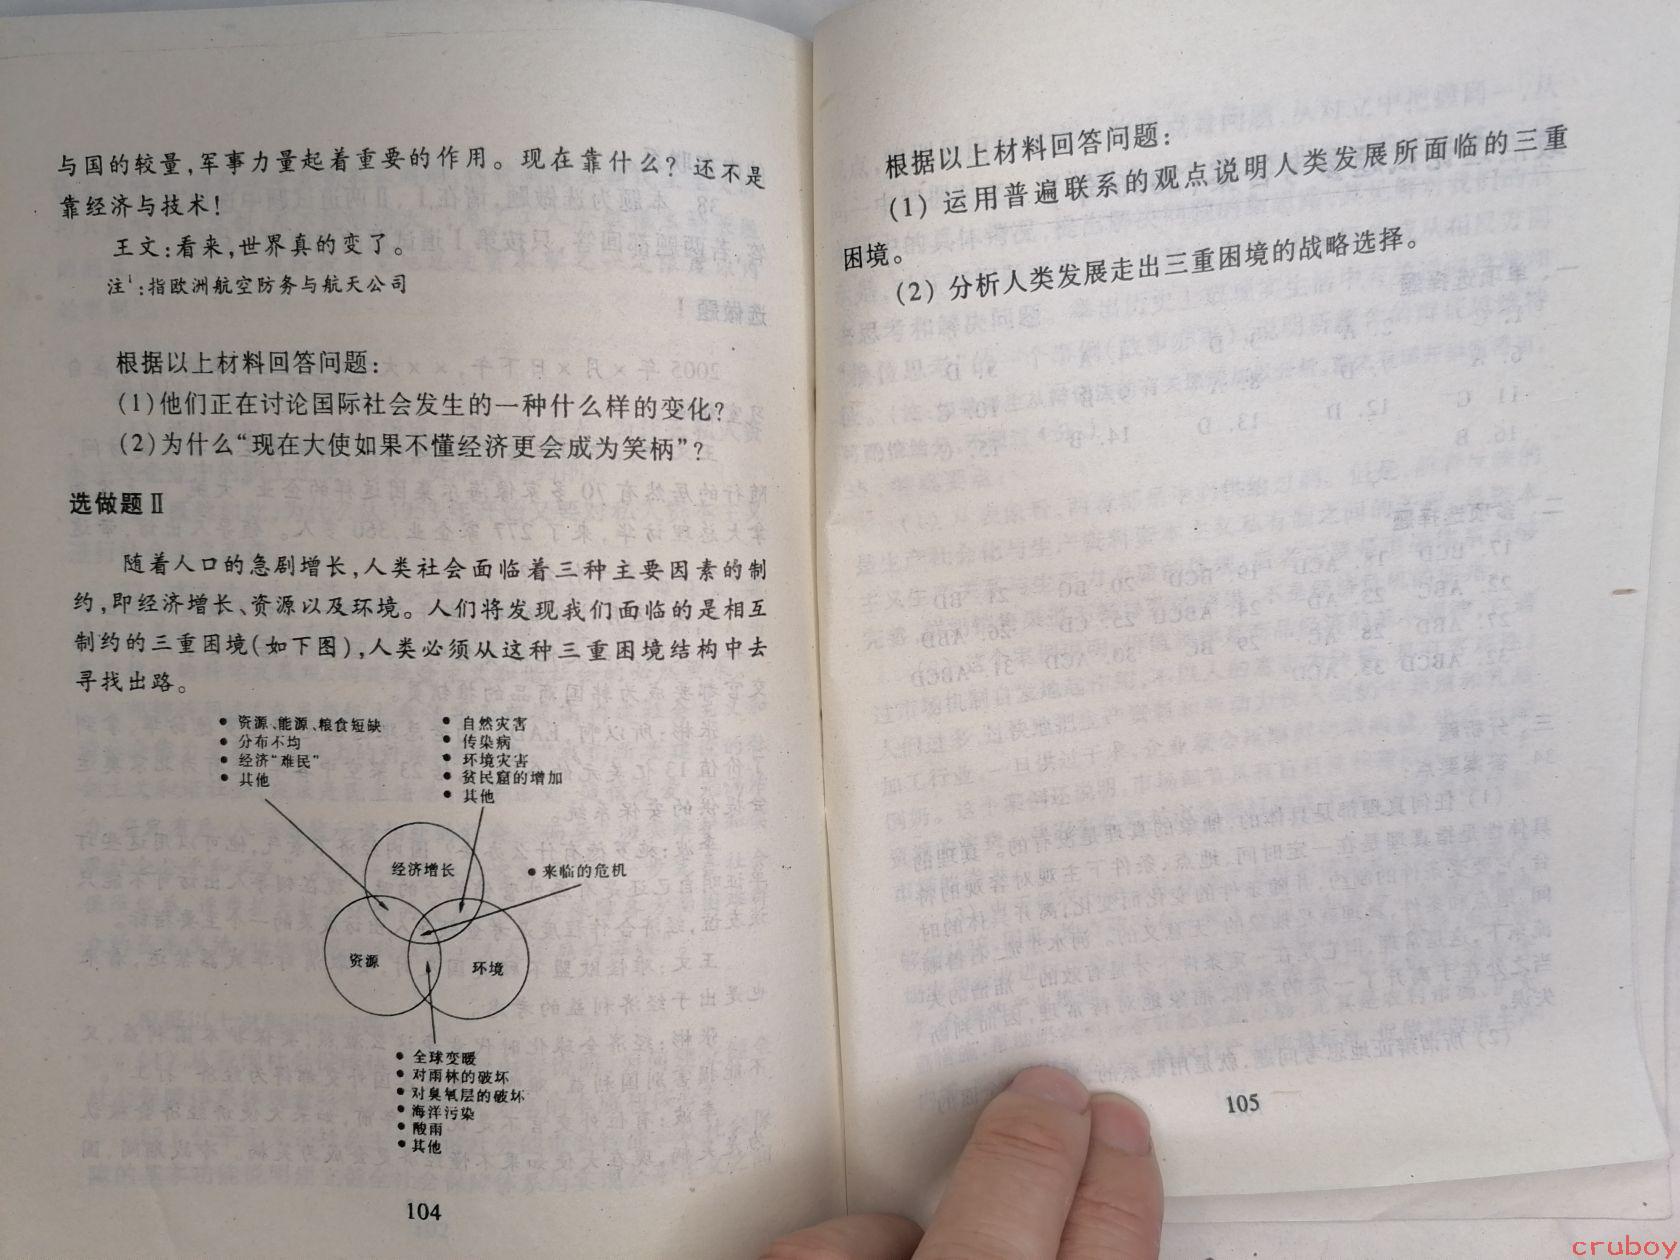 与国的较量,军事力量起着重要的作用。现在靠什么?还不是
靠经济与技术!
王文:看来,世界真的变了。
注¹:指欧洲航空防务与航天公司
根据以上材料回答问题:
(1)他们正在讨论国际社会发生的一种什么样的变化?
(2)为什么“现在大使如果不懂经济更会成为笑柄”?
选做题Ⅱ
随着人口的急剧增长,人类社会面临着三种主要因素的制
约,即经济增长、资源以及环境。人们将发现我们面临的是相互
制约的三重困境(如下图),人类必须从这种三重困境结构中去
寻找出路。
● 资源、能源、粮食短缺
● 分布不均
● 经济“难民”
● 其他
● 自然灾害
● 传染病
● 环境灾害
● 贫民窟的增加
● 其他
经济增长
● 来临的危机
资源
环境
● 全球变暖
● 对雨林的破坏
● 对臭氧层的破坏
● 海洋污染
● 酸雨
● 其他
104
根据以上材料回答问题:
(1) 运用普遍联系的观点说明人类发展所面临的三重
困境。
(2) 分析人类发展走出三重困境的战略选择。
105
cruboy